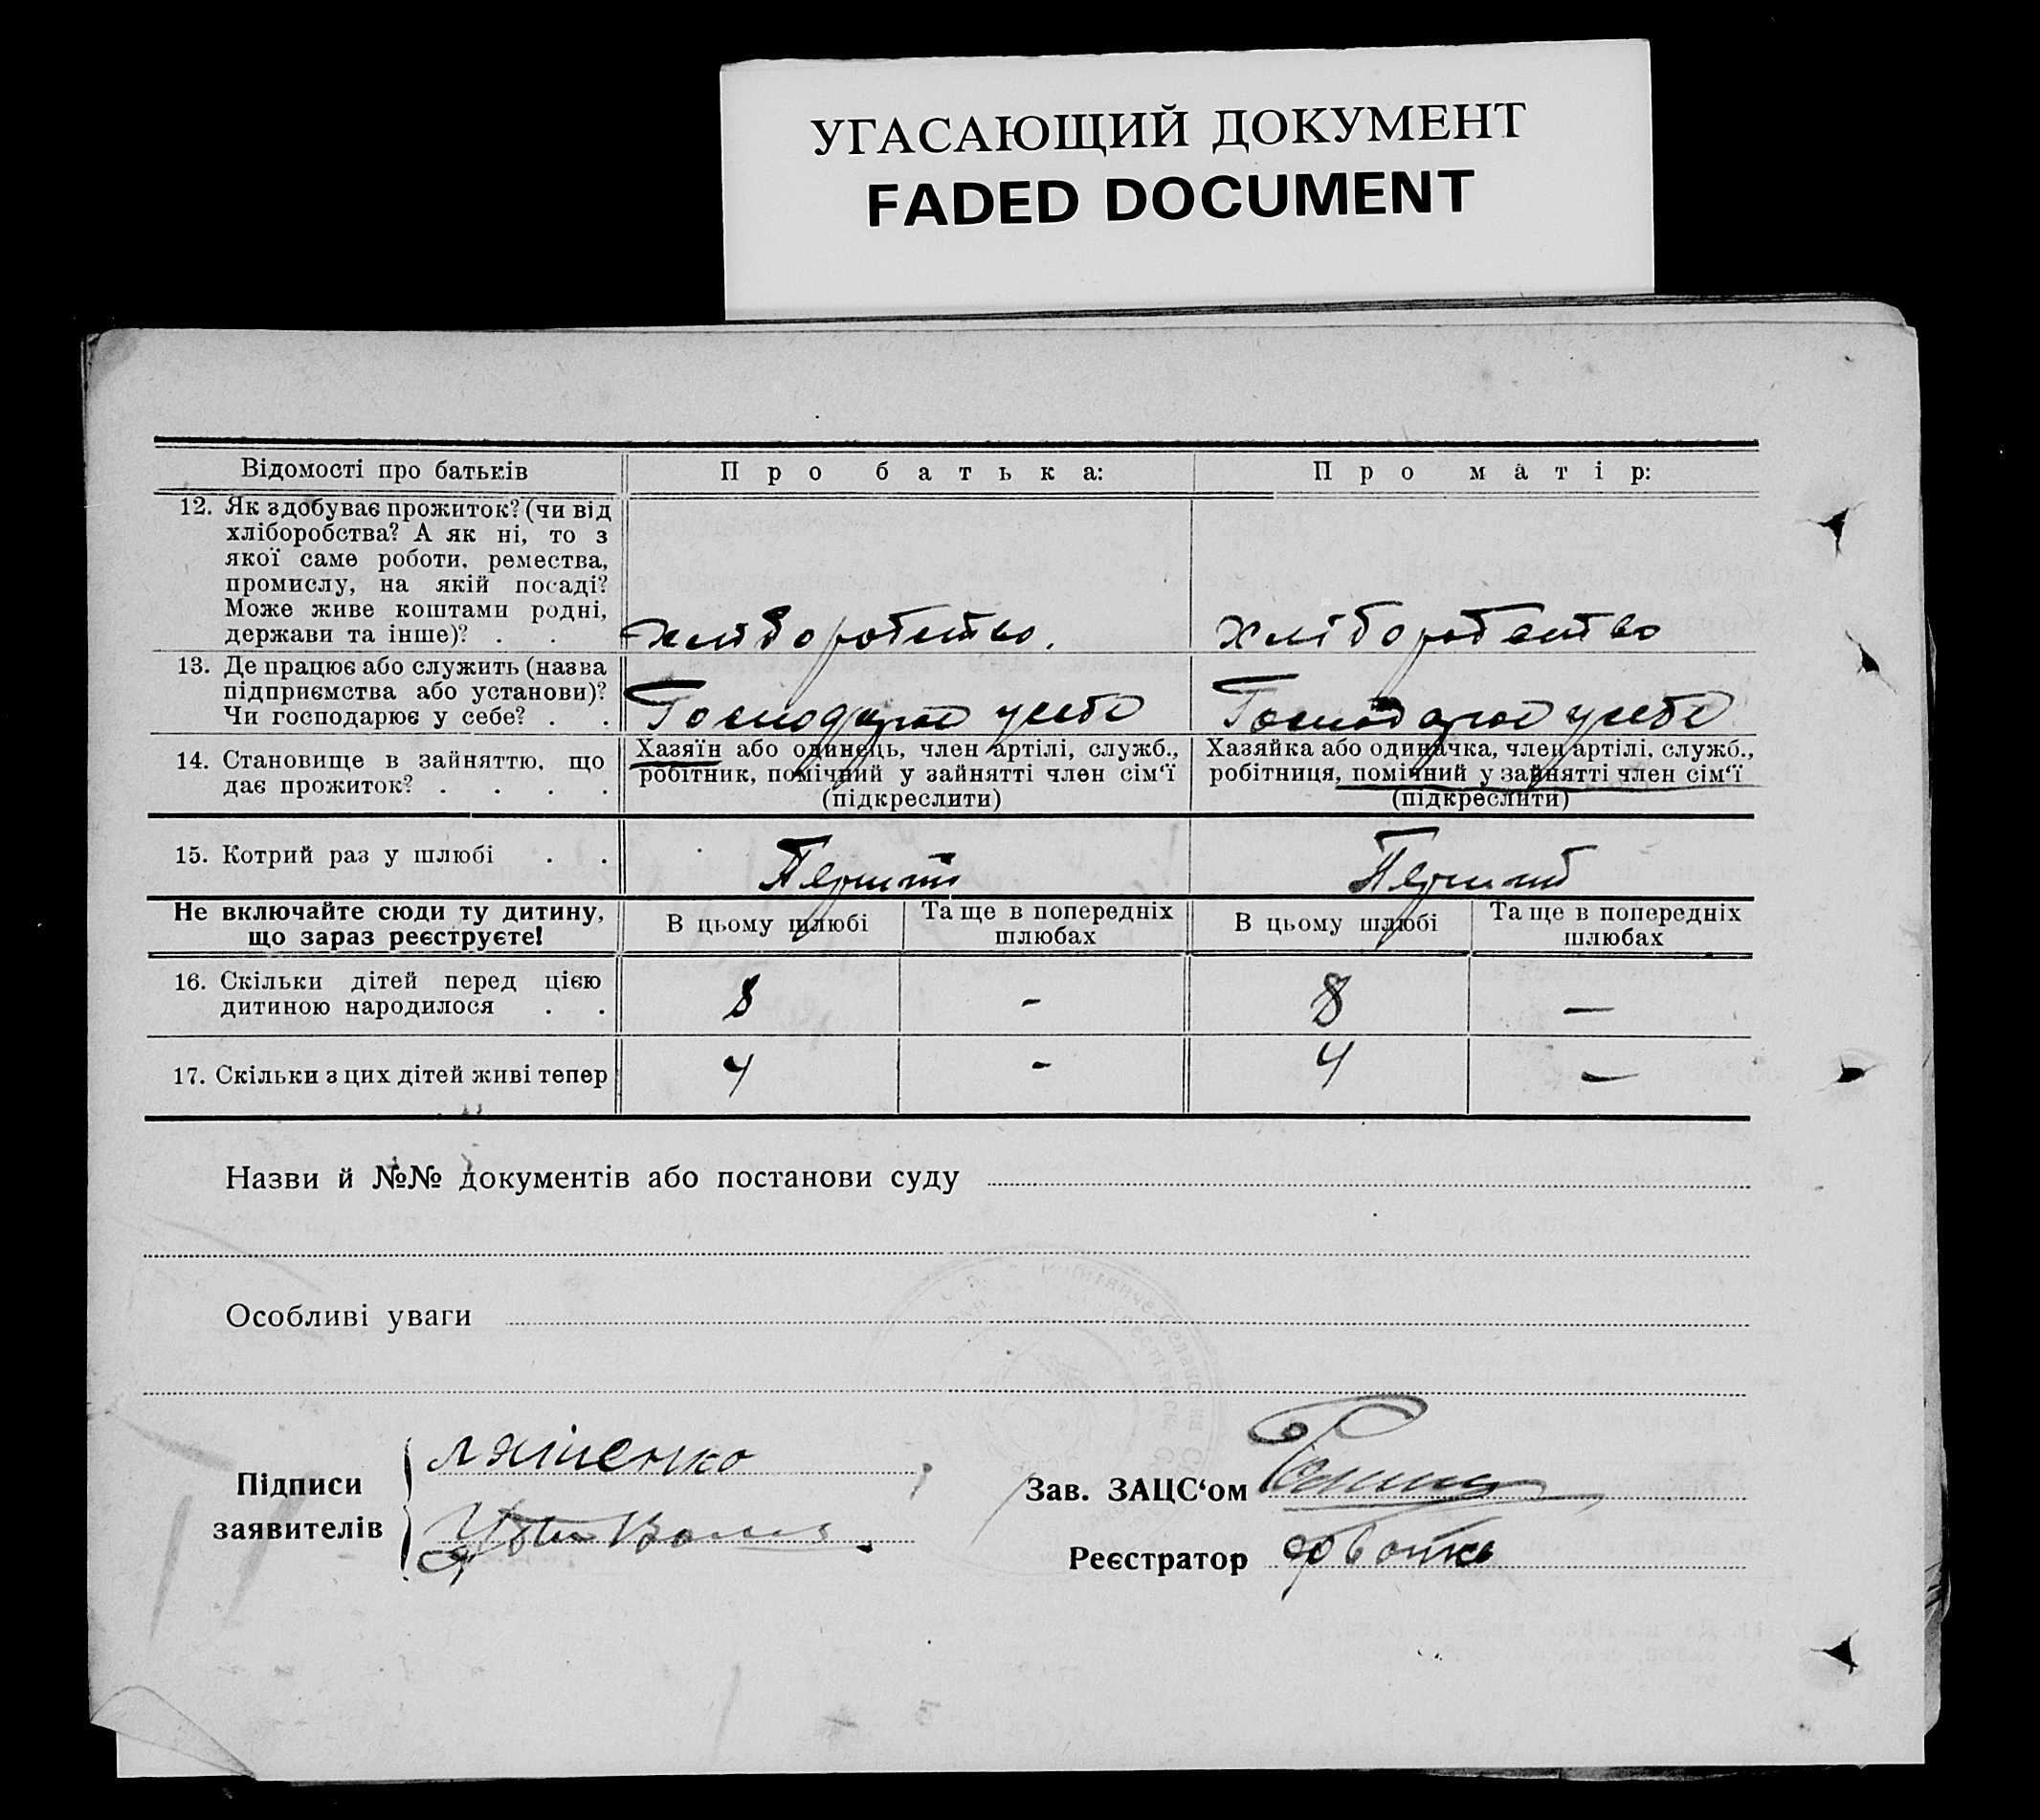 УГАСАЮЩИЙ ДОКУМЕНТ
FADED DOCUMENT
Відомості про батьків
Про батька:
Про матір:
12. Як здобуває прожиток? (чи від
хліборобства? А як ні, то з
якої саме роботи, ремества,
промислу, на якій посаді?
Може живе коштами родні,
держави та інше)? . .
хліборобство.
хліборобство
13. Де працює або служить (назва
підприємства або установи)?
Чи господарює у себе? . .
Господарює у себе
Господарює у себе
14. Становище в зайняттю, що
дає прожиток? . . . .
Хазяїн або одинець, член артілі, служб.,
робітник, помічний у зайнятті член сім'ї
(підкреслити)
Хазяйка або одиначка, член артілі, служб.,
робітниця, помічний у зайнятті член сім'ї
(підкреслити)
15. Котрий раз у шлюбі . .
Перший
Перший
Не включайте сюди ту дитину,
що зараз реєструєте!
В цьому шлюбі
Та ще в попередніх
шлюбах
В цьому шлюбі
Та ще в попередніх
шлюбах
16. Скільки дітей перед цією
дитиною народилося . .
8
-
8
—
17. Скільки з цих дітей живі тепер
4
-
4
—
Назви й №№ документів або постанови суду
Особливі уваги
Підписи
заявителів
Ляшенко
Зав. ЗАЦС'ом
Реєстратор